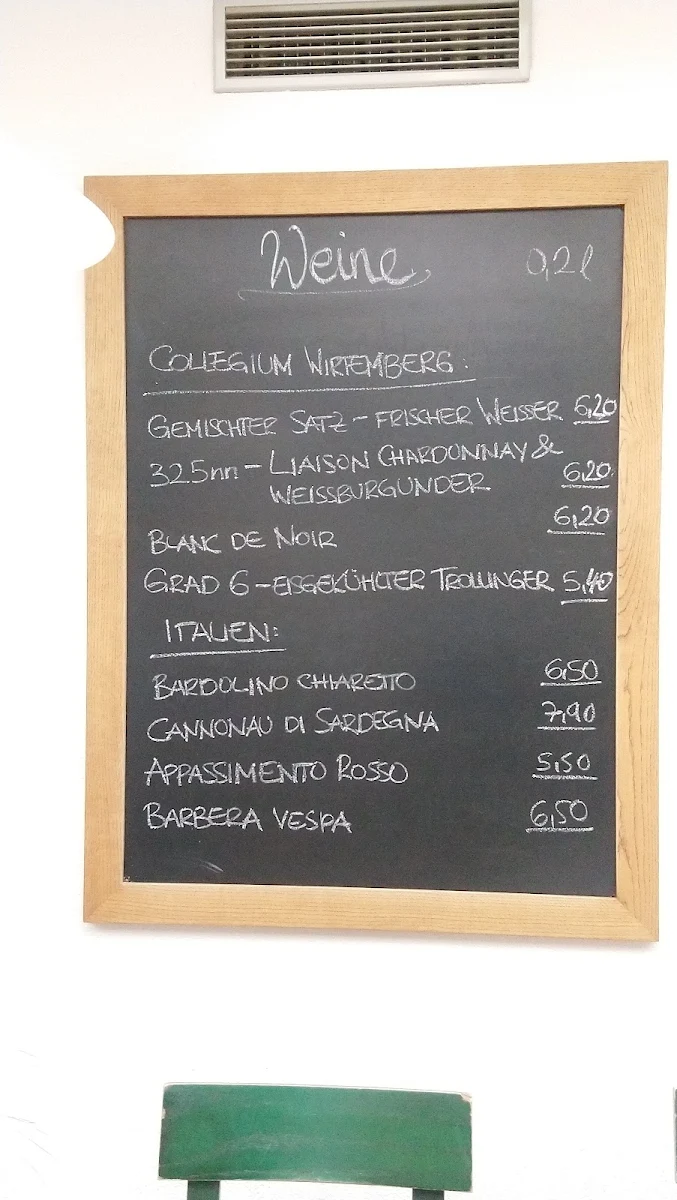 Weine 0,2l
COLLEGIUM WIRTEMBERG:
GEMISCHTER SATZ - FRISCHER WEISSER 6,20
325nn - LIAISON CHARDONNAY &
WEISSBURGUNDER 6,20
BLANC DE NOIR 6,20
GRAD 6 - EISGEKÜHLTER TROLLINGER 5,40
ITALIEN:
BARDOLINO CHIARETTO 6,50
CANNONAU DI SARDEGNA 7,90
APPASSIMENTO ROSSO 5,50
BARBERA VESPA 6,50